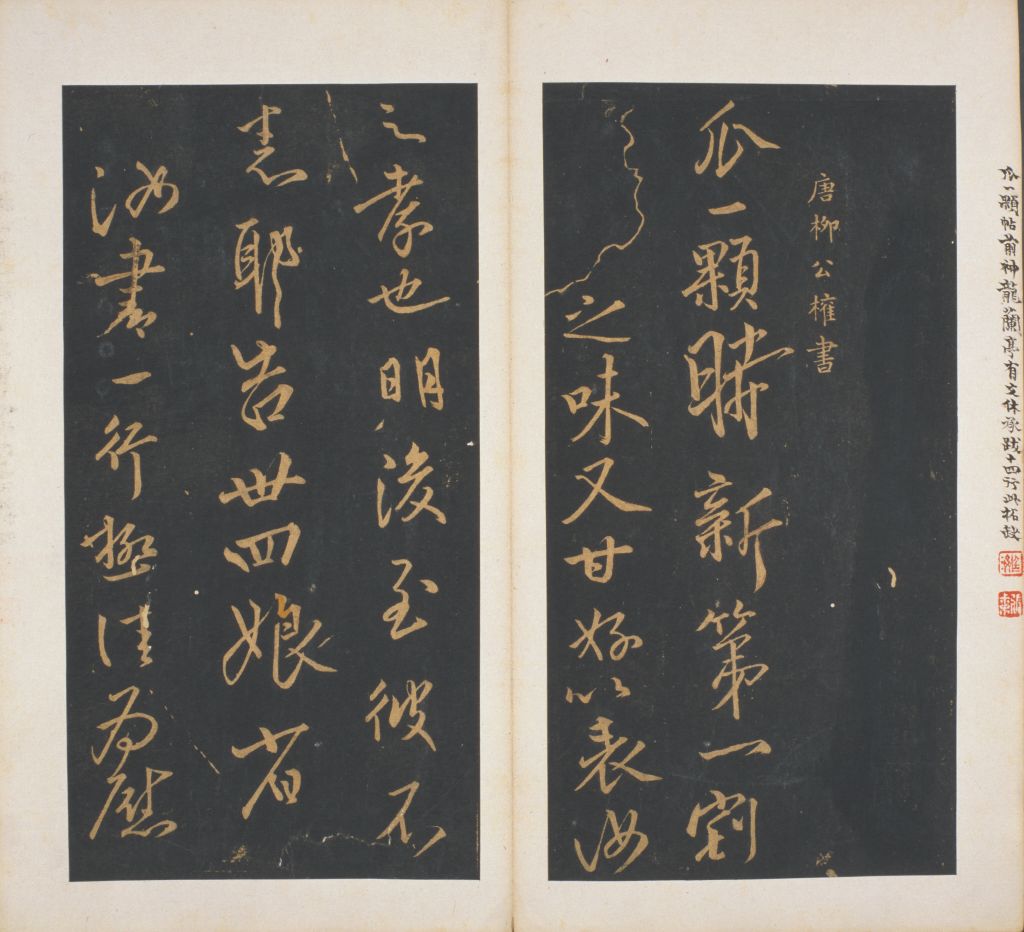 瓜一顆帖前神龍蘭亭有文休承跋十四行此拓
唐柳公權書
瓜一顆時新第一割
之味又甘好以表汝
之孝也明後至彼不
悉耶告卅四娘省
汝書一行極佳為慰